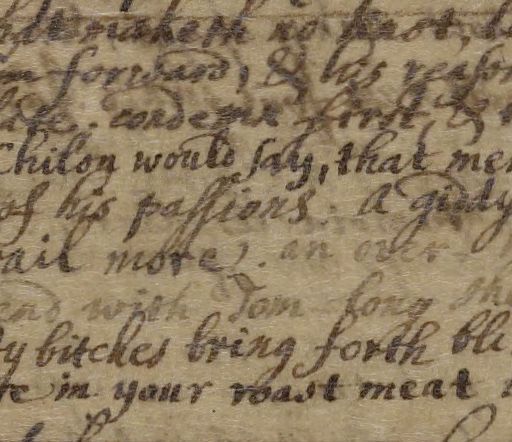 maketh no hast,
forward, & his reason
condemn first, &
Chilon would say, that men
of his passions. A giddy
ail more. an over-
end with Tom-long sh
y bitches bring forth bli
re in your roast meat